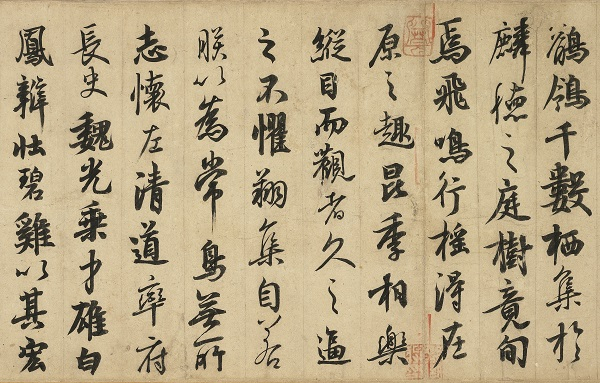 鶺鴒千數栖集於
麟德之庭樹竟旬
焉飛鳴行搖得在
原之趣昆季相樂
縱目而觀者久之逼
之不懼翔集自若
朕以為常鳥無所
志懷左清道率府
長史魏光乗才雄白
鳳辯壯碧雞以其宏